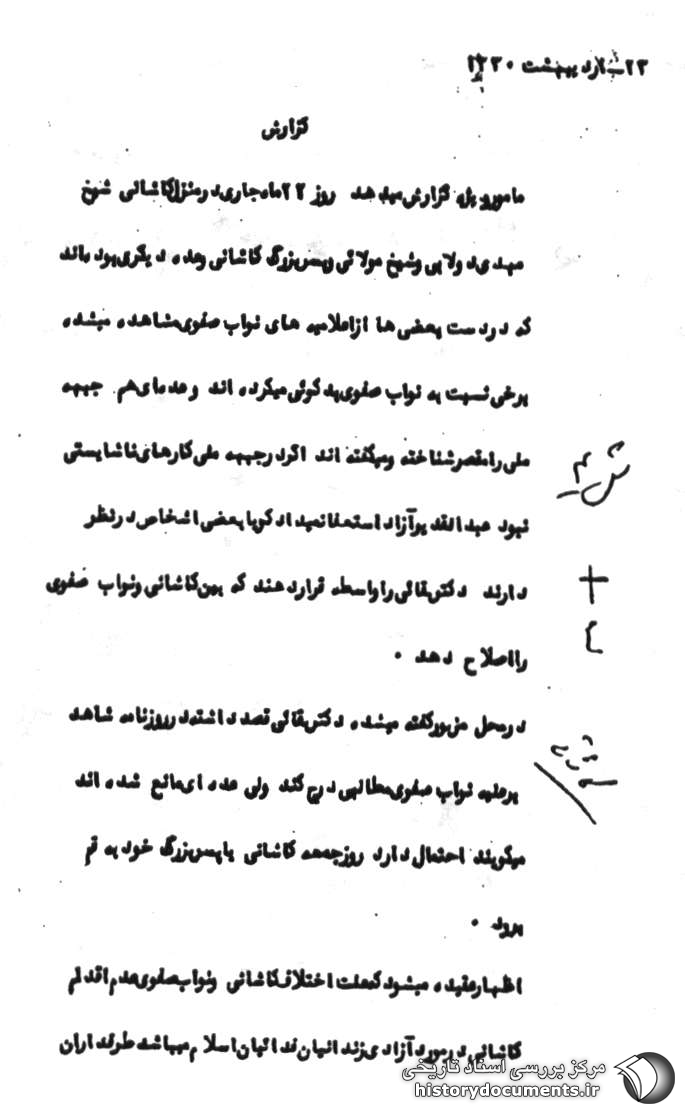 ۲۳ اردیبهشت ۱۳۳۰
گزارش
مامور ویژه گزارش میدهد روز ۲۲ ماه جاری در منزل کاشانی شیخ
مهدی دولابی و شیخ مولائی و پسر بزرگ کاشانی و عده دیگری بوده اند
که در دست بعضی ها از اعلامیه های نواب صفوی مشاهده میشده
برخی نسبت به نواب صفوی بدگوئی میکرده اند و عده ای هم جبهه
ملی را مقصر شناخته و میگفته اند اگر در جبهه ملی کارهای ناشایستی
نبود عبدالقدیر آزاد استعفا نمیداد گویا بعضی اشخاص در نظر
دارند دکتر بقائی را واسطه قرار دهند که بین کاشانی و نواب صفوی
را اصلاح دهد .
در محل مزبور گفته میشده دکتر بقائی قصد داشته در روزنامه شاهد
بر علیه نواب صفوی مطالبی درج کند ولی عده ای مانع شده اند
میگویند احتمال دارد روز جمعه کاشانی با پسر بزرگ خود به قم
برود .
اظهار عقیده میشود که علت اختلاف کاشانی و نواب صفوی عدم اقدام
کاشانی در مورد آزادی زندانیان فدائیان اسلام میباشد طرفداران
مرکز بررسی اسناد تاریخی
historydocuments.ir